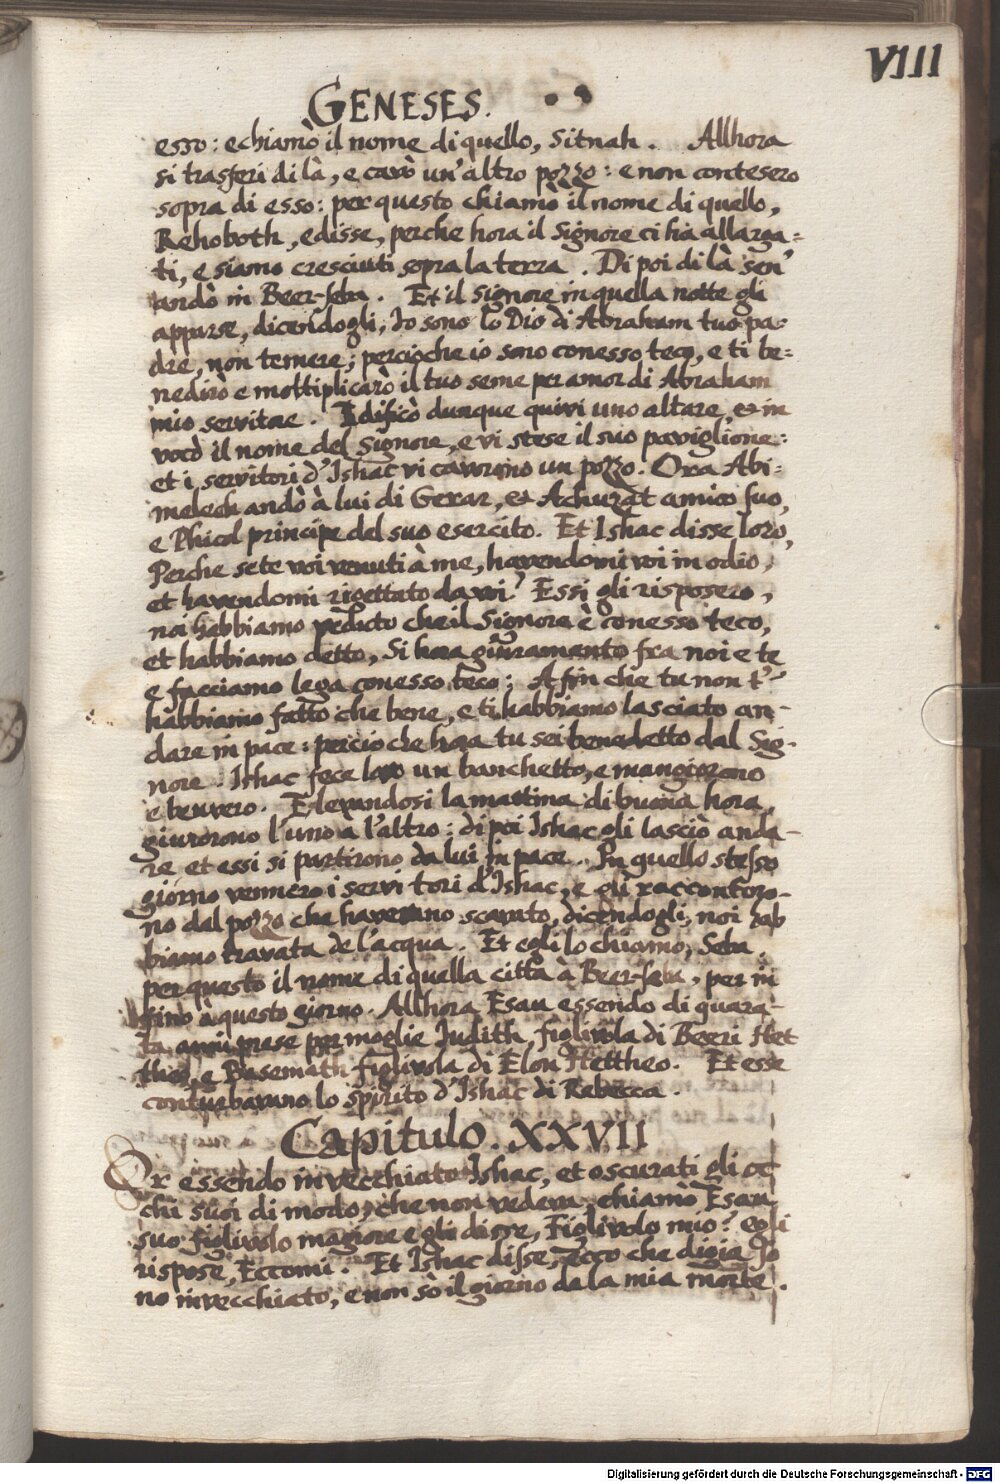 VIII
GENESES.
esso: e chiamò il nome di quello, Sitnah. Allhora
si trasferi di là, e cavò un'altro pozzo: e non contesero
sopra di esso: per questo chiamò il nome di quello,
Rehoboth, e disse, perche hora il Signore ci ha allarga-
ti, e siamo cresciuti sopra la terra. Di poi di là sen'
andò in Beer-seba. Et il Signore in quella notte gli
apparse, dicendogli, Io sono lo Dio di Abraham tuo pa-
dre, non temere; percioche io sono conesso teco, e ti be=
nedirò e moltiplicarò il tuo seme per amor di Abraham
mio servitore. Edificò dunque quivi uno altare, et in
vocò il nome del Signore, e vi stese il suo paviglione:
et i servitori d'Ishac vi cavorono un pozzo. Ora Abi=
melech andò à lui di Gerar, et Achuzat amico suo,
e Phicol principe del suo esercito. Et Ishac disse loro,
Perche sete voi venuti à me, havendomi voi in odio,
et havendomi rigettato da voi? Essi gli risposero,
noi habbiamo veduto che il Signore è conesso teco,
et habbiamo detto, Si hora giuramento fra noi e te
e facciamo lega conesso teco; Afin che tu non t'
habbiamo fatto che bene, e ti habbiamo lasciato an-
dare in pace: percio che hora tu sei benedetto dal Sig-
nore. Ishac fece loro un banchetto, e mangiorono
e beuvero. E levandosi la mattina di buona hora,
giurorono l'uno a l'altro: di poi Ishac gli lasciò anda-
re et essi si partirono da lui in pace. In quello stesso
giorno vennero i servitori d'Ishac, e gli raccontoro-
no dal pozzo che havevano scavato, dicendogli, noi hab
biamo travata de l'acqua. Et egli lo chiamo, Seba.
per questo il nome di quella città à Beer-seba, per in
fino à questo giorno. Allhora Esau essendo di quara-
ta anni prese per moglie Judith, figlivola di Beeri Het
theo, e Basemath figlivola di Elon Hettheo. Et esse
conturbavano lo spirito d'Ishac di Rebecca.
Capitulo. XXVII
Or essendo invecchiato Ishac, et oscurati gli oc
chi suoi di modo, che non vedeva, chiamò Esau
suo figlivolo magiore e gli disse, Figlivolo mio? egli
rispose, Eccomi. Et Ishac disse, ecco che digia So
no invecchiato, e non sò il giorno da la mia morte.
Digitalisierung gefördert durch die Deutsche Forschungsgemeinschaft - DFG